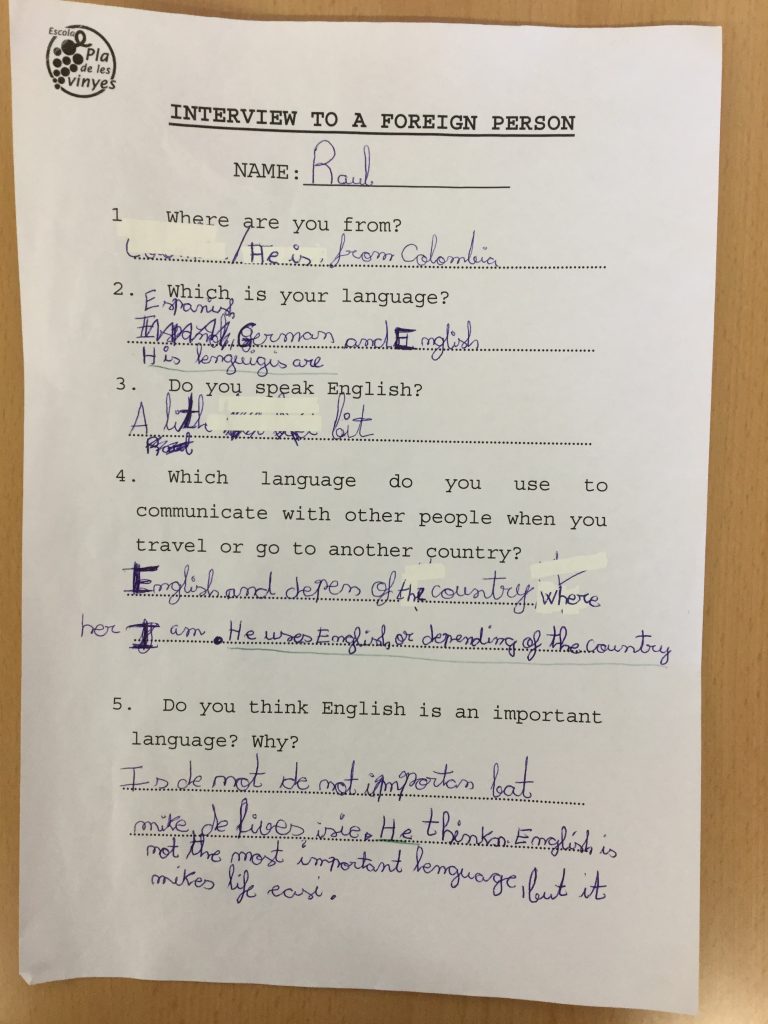 Escola
Pla
de les
vinyes
INTERVIEW TO A FOREIGN PERSON
NAME: Raul
1 Where are you from?
/ He is from Colombia
2. Which is your language?
Espanish
German and English
His lenguigis are
3. Do you speak English?
A litth bit
4. Which language do you use to
communicate with other people when you
travel or go to another country?
English and depen of the country where
her I am. He uses English, or depending of the country
5. Do you think English is an important
language? Why?
Is de mot de not importan bat
mike de lives isie. He thinkn English is
not the most important lenguage, but it
mikes life easi.